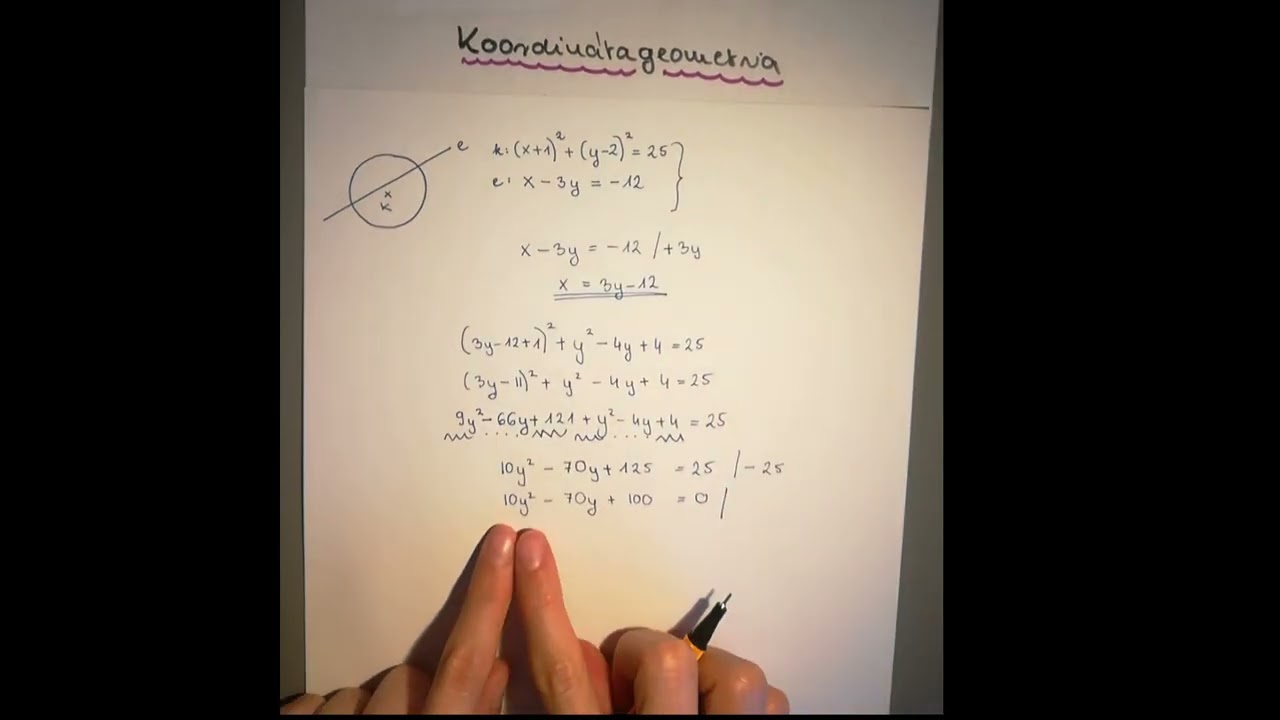 Koordinátageometria
e
k: (x+1)² + (y-2)² = 25
e: x - 3y = -12
x
k
x - 3y = -12 / +3y
x = 3y - 12
(3y-12+1)² + y² - 4y + 4 = 25
(3y-11)² + y² - 4y + 4 = 25
9y² - 66y + 121 + y² - 4y + 4 = 25
10y² - 70y + 125 = 25 / -25
10y² - 70y + 100 = 0 /